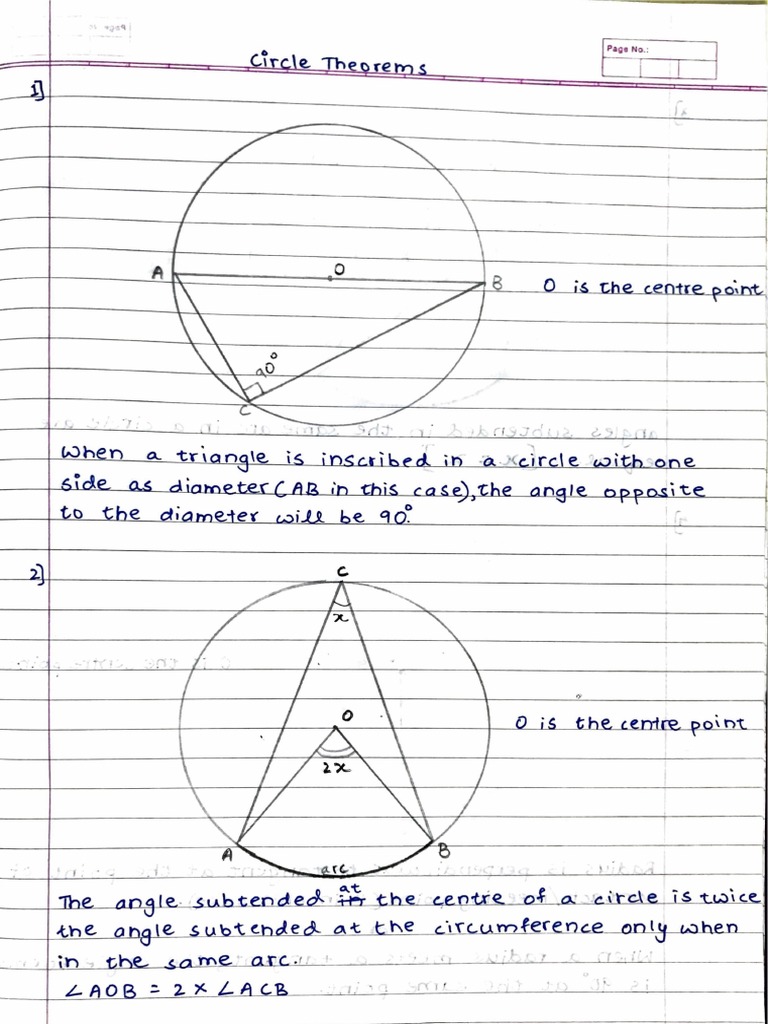 Page No.:
Circle Theorems
1]
A
O
B
O is the centre point
90°
C
When a triangle is inscribed in a circle with one
side as diameter (AB in this case), the angle opposite
to the diameter will be 90°.
2]
C
x
O
O is the centre point
2x
A
B
arc
The angle subtended at the centre of a circle is twice
the angle subtended at the circumference only when
in the same arc.
∠AOB = 2 × ∠ACB